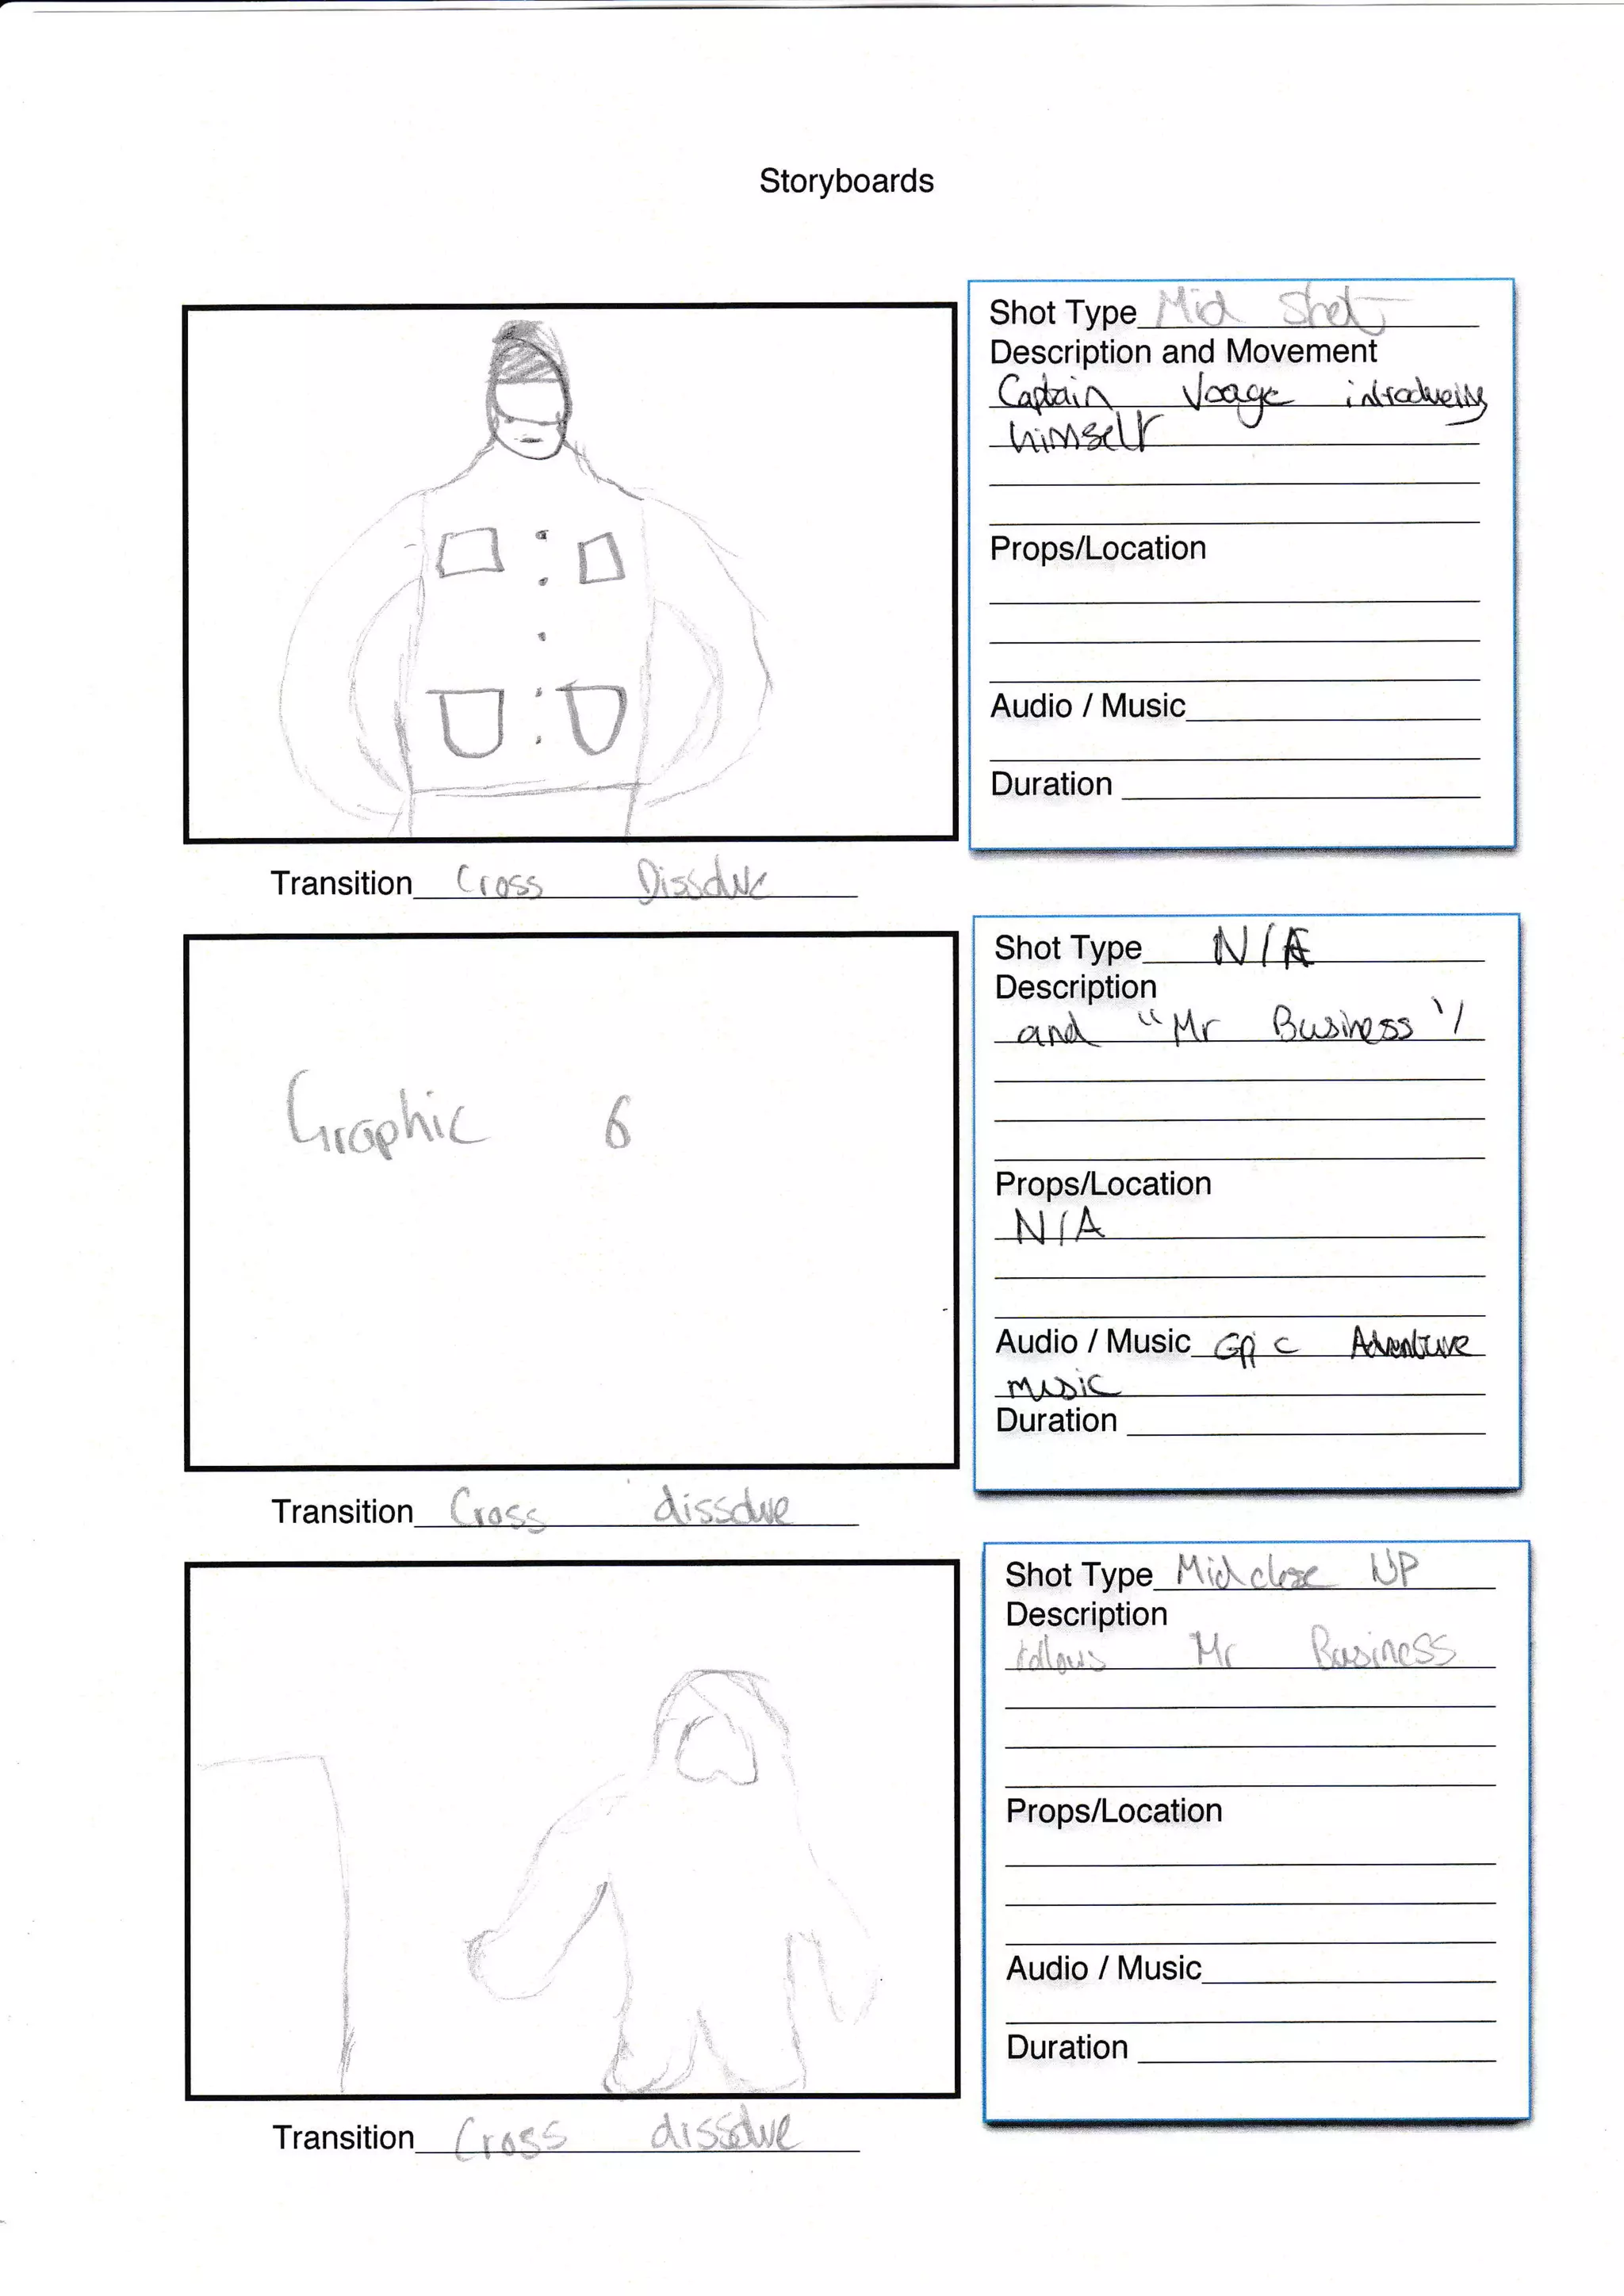 Storyboards
Shot Type Mid Shot
Description and Movement
Captain Voage introducing
himself
Props/Location
Audio / Music
Duration
Transition Cross Dissolve
Graphic 6
Shot Type N/A
Description
and "Mr Business"
Props/Location
N/A
Audio / Music Epic Adventure
music
Duration
Transition Cross dissolve
Shot Type Mid close UP
Description
follows Mr Business
Props/Location
Audio / Music
Duration
Transition Cross dissolve